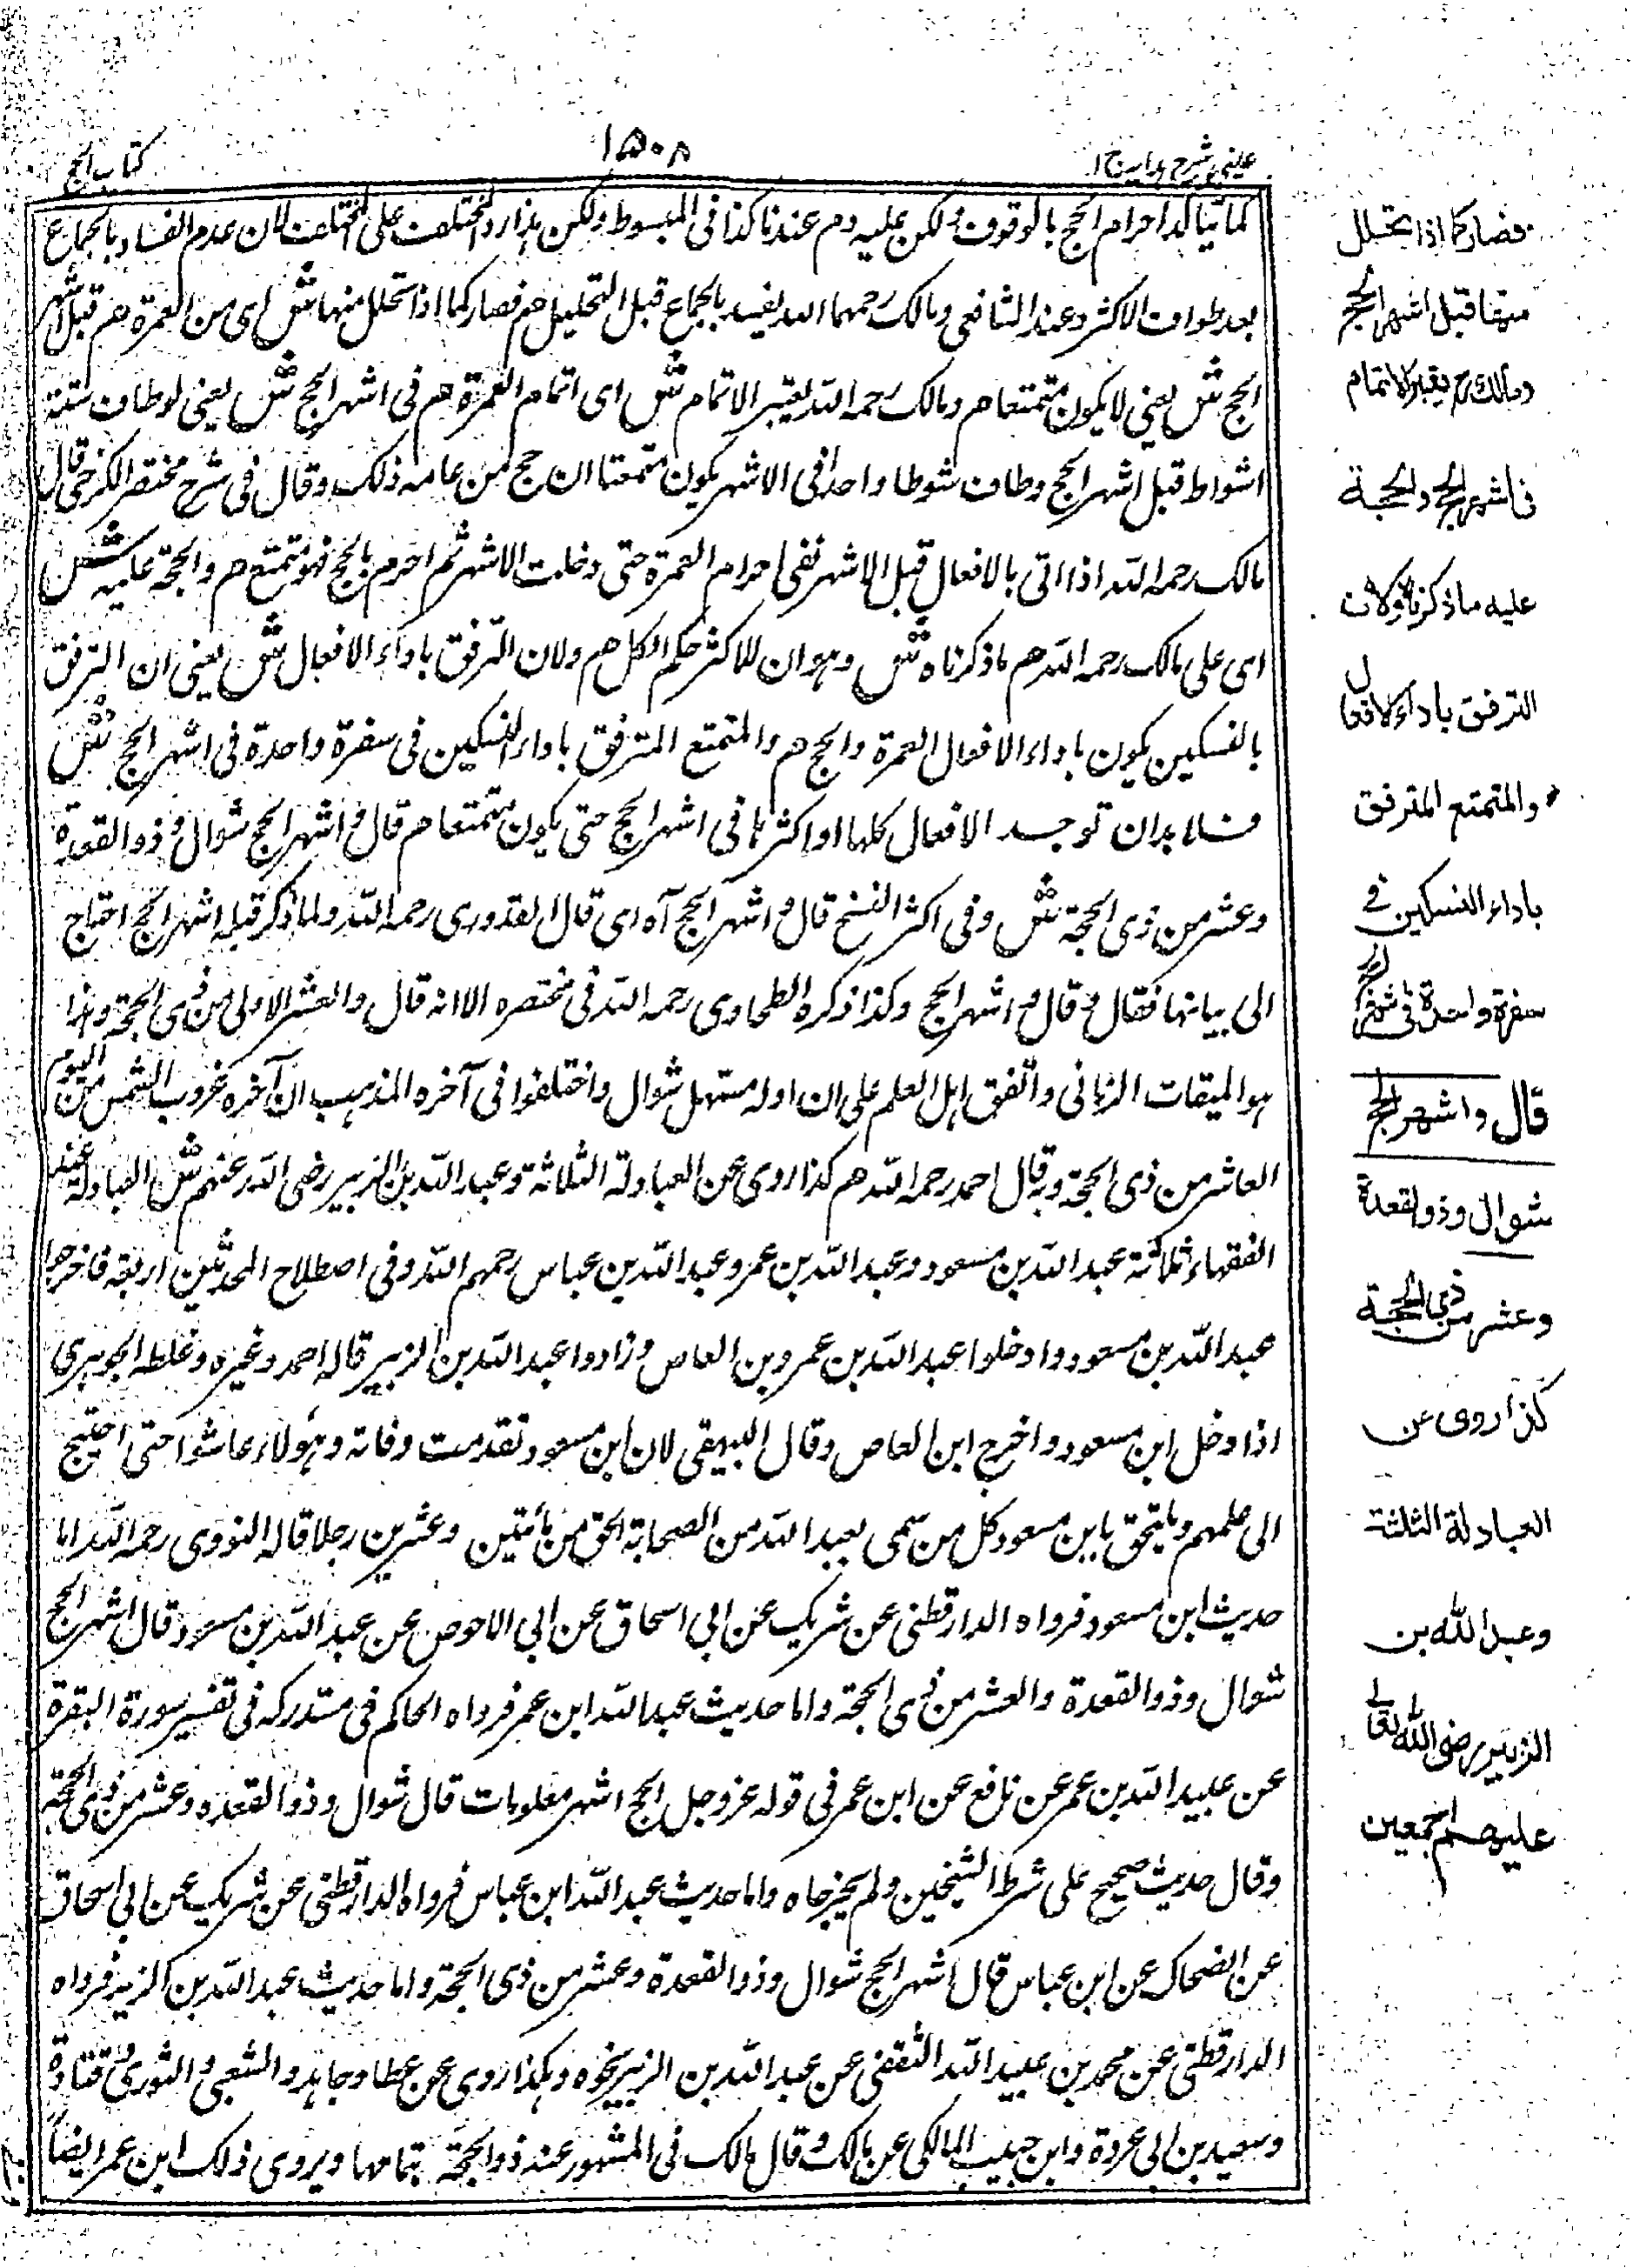 عینی شرح ہدایہ ج ا
۱۵۰۸
کتاب الحج
کما یتاکد احرام الحج بالوقوف ولکن علیه دم عندنا کذا فی المبسوط ولکن ہذا رد المختلف علی المختلف لان عدم الفساد بالجماع
بعد طواف الاکثر وعند الشافعی ومالک رحمہما اللہ یفسد بالجماع قبل التحلیل ھم فصار کما اذا تحلل منہا ش ای من العمرة ھم قبل اشہر
الحج ش یعنی لا یکون متمتعا ھم ومالک رحمہ اللہ یعتبر الاتمام ش ای اتمام العمرة ھم فی اشہر الحج ش یعنی لو طاف ستة
اشواط قبل اشہر الحج وطاف شوطا واحدا فی الاشہر یکون متمتعا ان حج من عامہ ذلک وقال فی شرح مختصر الکرخی قال
مالک رحمہ اللہ اذا اتی بالافعال قبل الاشہر نفی احرام العمرة حتی دخلت الاشہر ثم احرم بالحج فہو متمتع ھم والحجة علیہ ش
ای علی مالک رحمہ اللہ ھم ما ذکرناہ ش وہو ان للاکثر حکم الکل ھم ولان الترفق باداء الافعال ش یعنی ان الترفق
بالنسکین یکون باداء الافعال العمرة والحج ھم والمتمتع المترفق باداء النسکین فی سفرة واحدة فی اشہر الحج ش
فلابد ان توجد الافعال کلہا او اکثرہا فی اشہر الحج حتی یکون متمتعا ھم قال واشہر الحج شوال وذو القعدة
وعشر من ذی الحجة ش وفی اکثر النسخ قال واشہر الحج آہ ای قال القدوری رحمہ اللہ ولما ذکر قبلہ اشہر الحج احتاج
الی بیانہا فقال وقال واشہر الحج وکذا ذکرہ الطحاوی رحمہ اللہ فی مختصرہ الا انہ قال والعشر الاولی من ذی الحجة وہذا
ہو المیقات الزمانی واتفق اہل العلم علی ان اولہ مستہل شوال واختلفوا فی آخرہ المذہب ان آخرہ غروب الشمس من الیوم
العاشر من ذی الحجة وبہ قال احمد رحمہ اللہ ھم کذا روی عن العبادلة الثلاثة وعبد اللہ بن الزبیر رضی اللہ عنہم ش العبادلة عند
الفقہاء ثلاثة عبد اللہ بن مسعود وعبد اللہ بن عمر وعبد اللہ بن عباس رحمہم اللہ وفی اصطلاح المحدثین اربعة فاخرجوا
عبد اللہ بن مسعود وادخلوا عبد اللہ بن عمرو بن العاص وزادوا عبد اللہ بن الزبیر قالہ احمد وغیرہ وغلط الجوہری
اذا دخل ابن مسعود واخرج ابن العاص وقال البیہقی لان ابن مسعود تقدمت وفاتہ وہؤلاء عاشوا حتی احتیج
الی علمہم ویلتحق بابن مسعود کل من سمی بعبد اللہ من الصحابة الحق من مأتین وعشرین رجلا قالہ النووی رحمہ اللہ اما
حدیث ابن مسعود فرواہ الدارقطنی عن شریک عن ابی اسحاق عن ابی الاحوص عن عبد اللہ بن مسعود قال اشہر الحج
شوال وذو القعدة والعشر من ذی الحجة واما حدیث عبد اللہ ابن عمر فرواہ الحاکم فی مستدرکہ فی تفسیر سورة البقرة
عن عبید اللہ بن عمر عن نافع عن ابن عمر فی قولہ عز وجل الحج اشہر معلومات قال شوال وذو القعدہ وعشر من ذی الحجة
وقال حدیث صحیح علی شرط الشیخین ولم یخرجاہ واما حدیث عبد اللہ ابن عباس فرواہ الدارقطنی عن شریک عن ابی اسحاق
عن الضحاک عن ابن عباس قال اشہر الحج شوال وذو القعدة وعشر من ذی الحجة واما حدیث عبد اللہ بن الزبیر فرواہ
الدارقطنی عن محمد بن عبید اللہ الثقفی عن عبد اللہ بن الزبیر نحوہ وہکذا روی عن عطا ومجاہد والشعبی والثوری وقتادة
وسعید بن ابی عروة وابن حبیب المالکی عن مالک وقال مالک فی المشہور عنہ ذو الحجة بتمامہا ویروی ذلک ابن عمر ایضاً
فصار کما اذا تحلل
منها قبل اشهر الحج
ومالک رح یعتبر الاتمام
فی اشهر الحج والحجة
علیه ما ذکرنا ولان
الترفق باداء الافعال
والمتمتع المترفق
باداء النسکین فی
سفرة واحدة فی اشهر الحج
قال واشهر الحج
شوال وذو القعدة
وعشر من ذی الحجة
کذا روی عن
العبادلة الثلثة
وعبد الله بن
الزبیر رضی الله تعالی
علیهم اجمعین